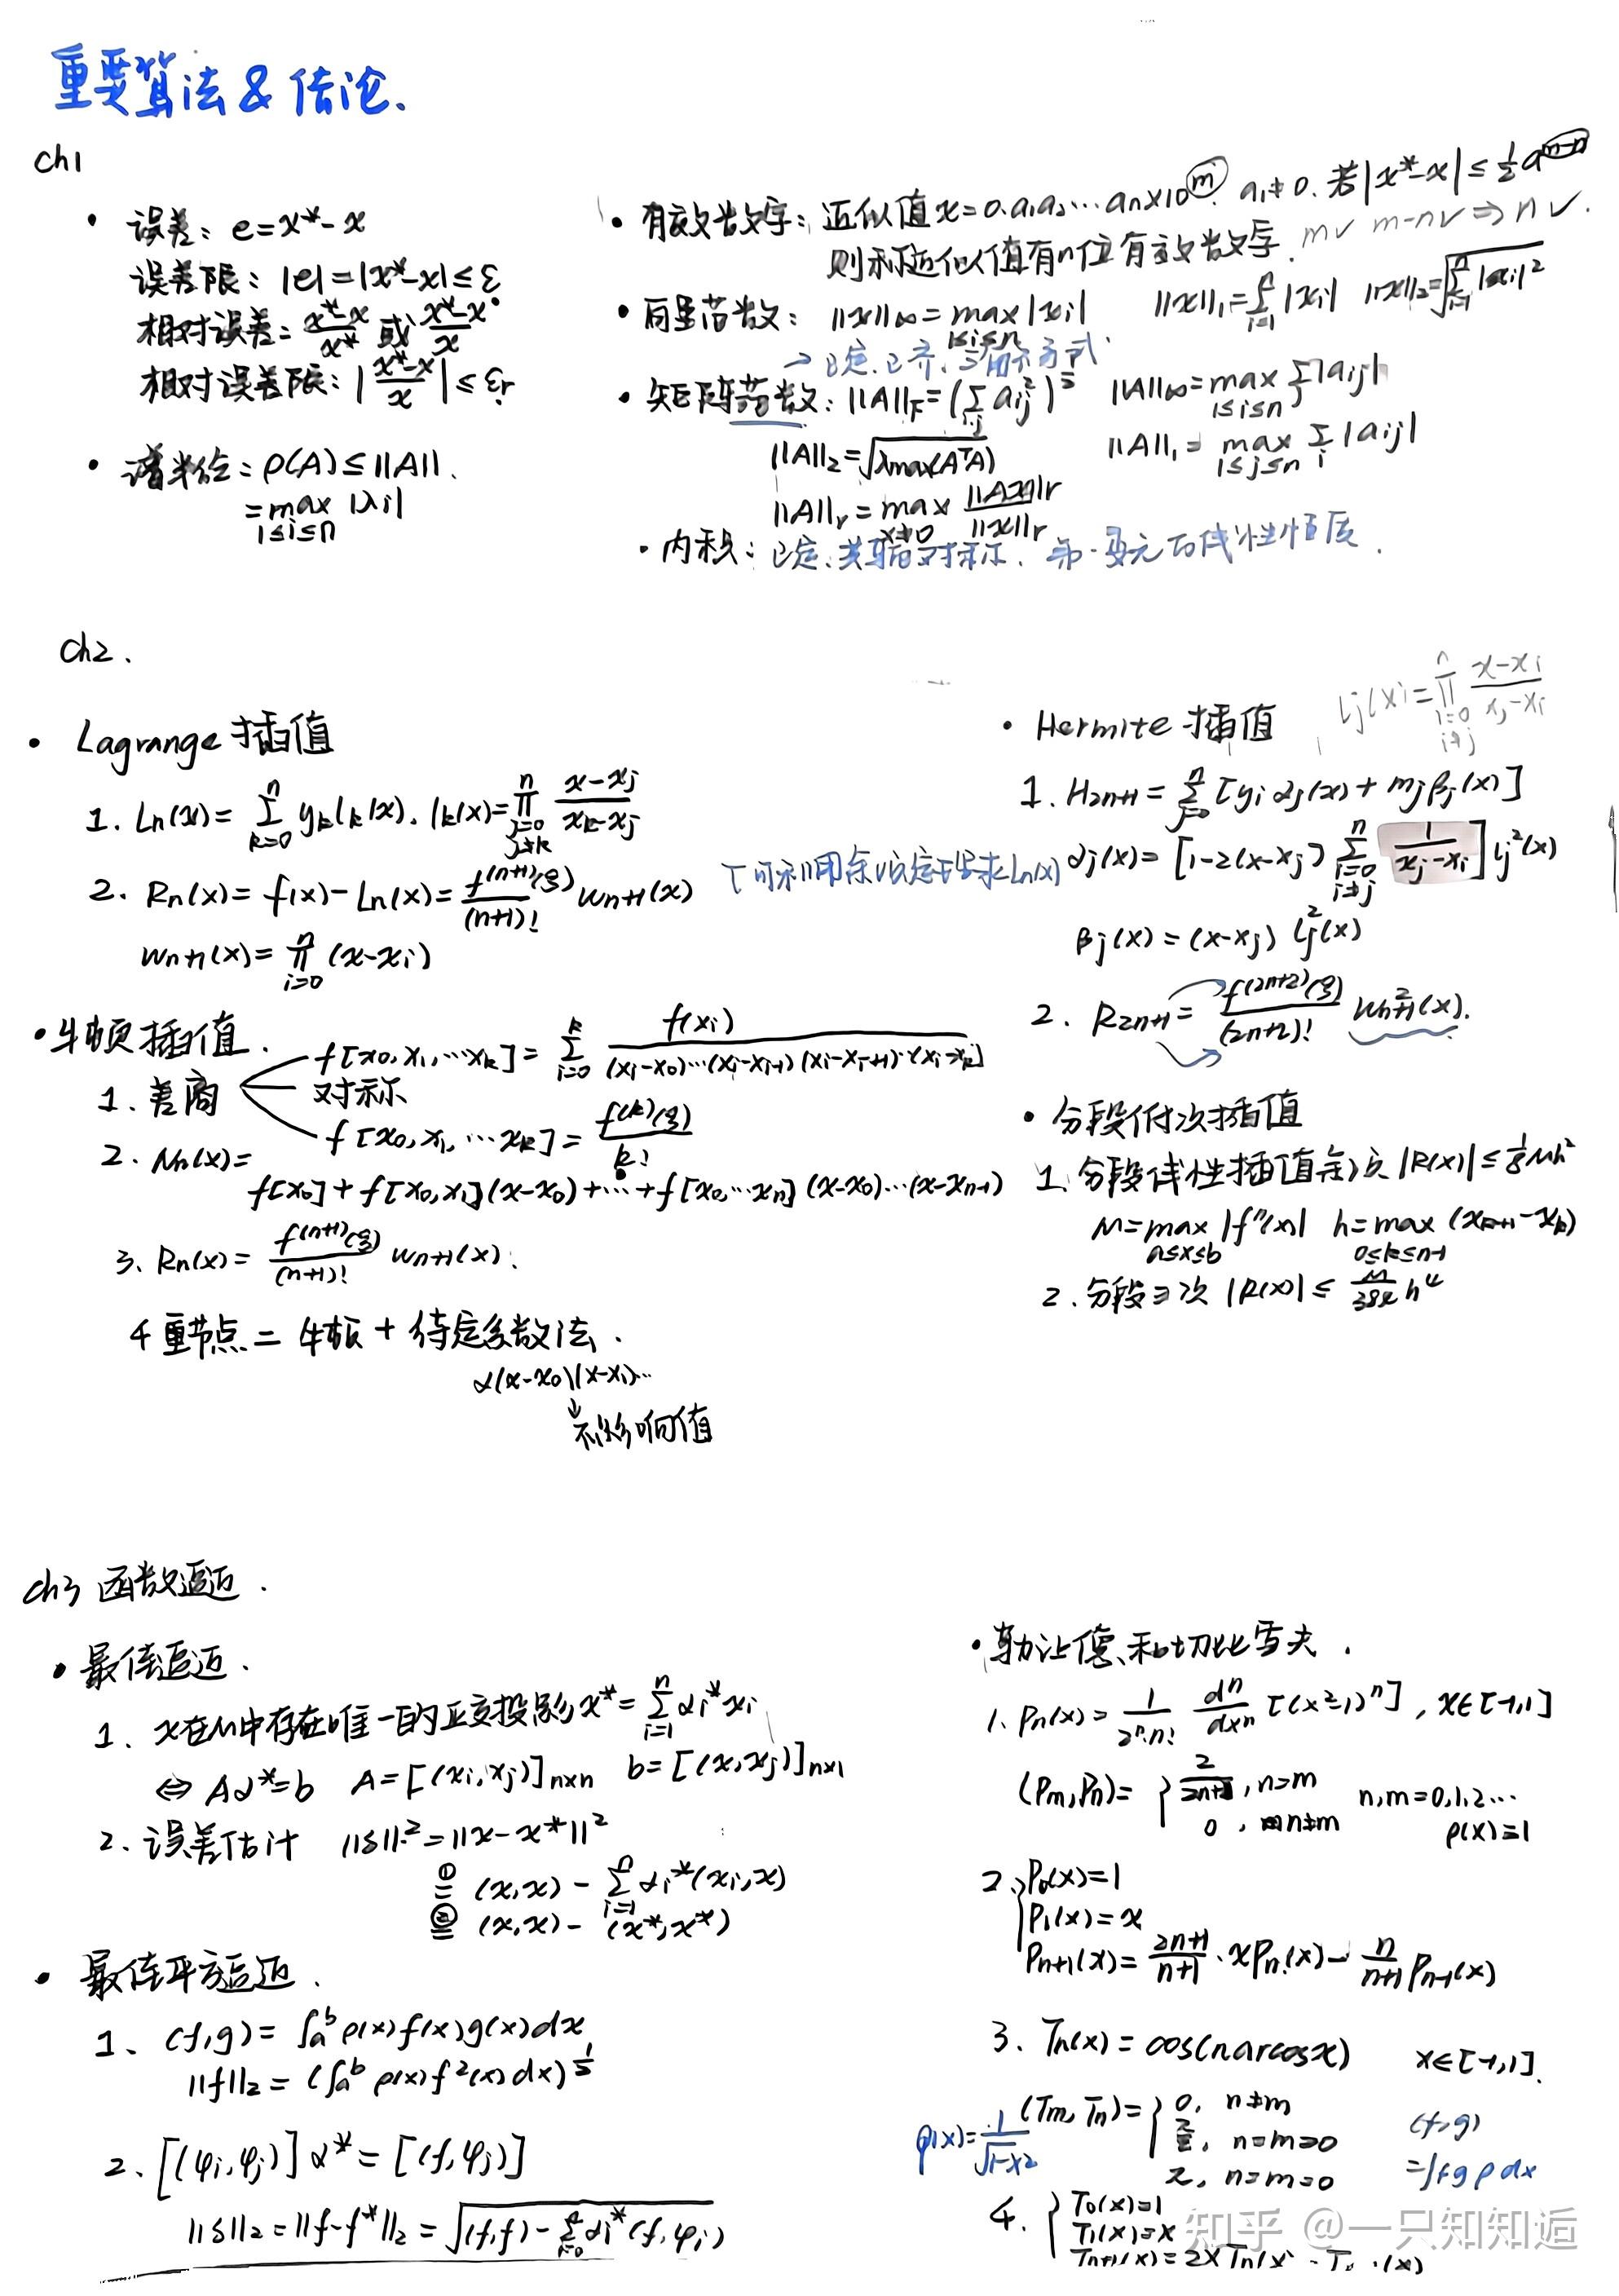 重要算法 & 结论.
ch1
· 误差: e=x*-x
误差限: |e|=|x*-x|≤ε
相对误差= (x*-x)/x* 或 (x*-x)/x
相对误差限: |(x*-x)/x|≤εr
· 谱半径: ρ(A)≤||A||.
=max |λi|
1≤i≤n
· 有效数字: 近似值 x=0.a1a2…an×10^m. a1≠0. 若|x*-x|≤½a^(m-n)
则称近似值有n位有效数字. m✓ m-n✓ ⇒ n✓.
· 向量范数: ||x||∞=max|xi| ||x||1=Σ|xi| ||x||2=√(Σ|xi|²)
1≤i≤n i=1 i=1
→ 正定.正齐.三角不等式.
· 矩阵范数: ||A||F=(Σ aij²)^½ ||A||∞=max Σ|aij|
i,j 1≤i≤n j
||A||2=√(λmax(AᵀA)) ||A||1=max Σ|aij|
1≤j≤n i
||A||r=max ||Ax||r/||x||r
x≠0
· 内积: 正定.共轭对称. 第一变元的线性性质.
ch2.
· Lagrange 插值
1. Ln(x)= Σ(k=0→n) yk lk(x). lk(x)=Π(j=0, j≠k→n) (x-xj)/(xk-xj)
2. Rn(x)=f(x)-Ln(x)= f^(n+1)(ξ)/(n+1)! wn+1(x)
wn+1(x)=Π(i=0→n) (x-xi)
· 牛顿插值.
1. 差商
f[x0,x1,…xk]=Σ(i=0→k) f(xi)/((xi-x0)…(xi-xi-1)(xi-xi+1)…(xi-xk))
对称
f[x0,x1,…xk]= f^(k)(ξ)/k!
2. Nn(x)=
f[x0]+f[x0,x1](x-x0)+…+f[x0,…xn](x-x0)…(x-xn-1)
3. Rn(x)= f^(n+1)(ξ)/(n+1)! wn+1(x).
4 重节点 = 牛顿 + 待定系数法.
α(x-x0)(x-x1)…
↓
不影响值
· Hermite 插值 lj(x)=Π(i=0, i≠j→n) (x-xi)/(xj-xi)
1. H2n+1=Σ(j=0→n) [yj αj(x)+mj βj(x)]
αj(x)=[1-2(x-xj) Σ(i=0, i≠j→n) 1/(xj-xi)] lj²(x)
βj(x)=(x-xj) lj²(x)
2. R2n+1= f^(2n+2)(ξ)/(2n+2)! wn+1²(x).
· 分段低次插值
1. 分段线性插值余项 |R(x)|≤⅛Mh²
M=max|f''(x)| h=max(xk+1-xk)
a≤x≤b 0≤k≤n-1
2. 分段三次 |R(x)|≤ M/384 h⁴
ch3 函数逼近.
· 最佳逼近.
1. x在M中存在唯一的正交投影 x*=Σ(i=1→n) αi* xi
⇔ Aα*=b A=[(xi,xj)]n×n b=[(x,xj)]n×1
2. 误差估计 ||δ||²=||x-x*||²
①= (x,x)-Σ(i=1→n) αi*(xi,x)
②= (x,x)-(x*,x*)
· 最佳平方逼近.
1. (f,g)=∫ₐᵇ ρ(x)f(x)g(x)dx
||f||2=(∫ₐᵇ ρ(x)f²(x)dx)^½
2. [(φi,φj)]α*=[(f,φj)]
||δ||2=||f-f*||2=√((f,f)-Σ(i=0→n) αi*(f,φi))
· 勒让德和切比雪夫.
1. Pn(x)= 1/(2ⁿ·n!) dⁿ/dxⁿ [(x²-1)ⁿ], x∈[-1,1]
(Pm,Pn)={ 2/(2n+1), n=m n,m=0,1,2…
0, n≠m ρ(x)=1
2. { P0(x)=1
P1(x)=x
Pn+1(x)= (2n+1)/(n+1)·xPn(x)- n/(n+1) Pn-1(x)
3. Tn(x)=cos(n arccosx) x∈[-1,1].
ρ(x)=1/√(1-x²) (Tm,Tn)={ 0, n≠m
π/2, n=m≠0
π, n=m=0
(f,g)
=∫fgρdx
4. { T0(x)=1
T1(x)=x
Tn+1(x)=2xTn(x)-Tn-1(x)
知乎 @一只知知逅